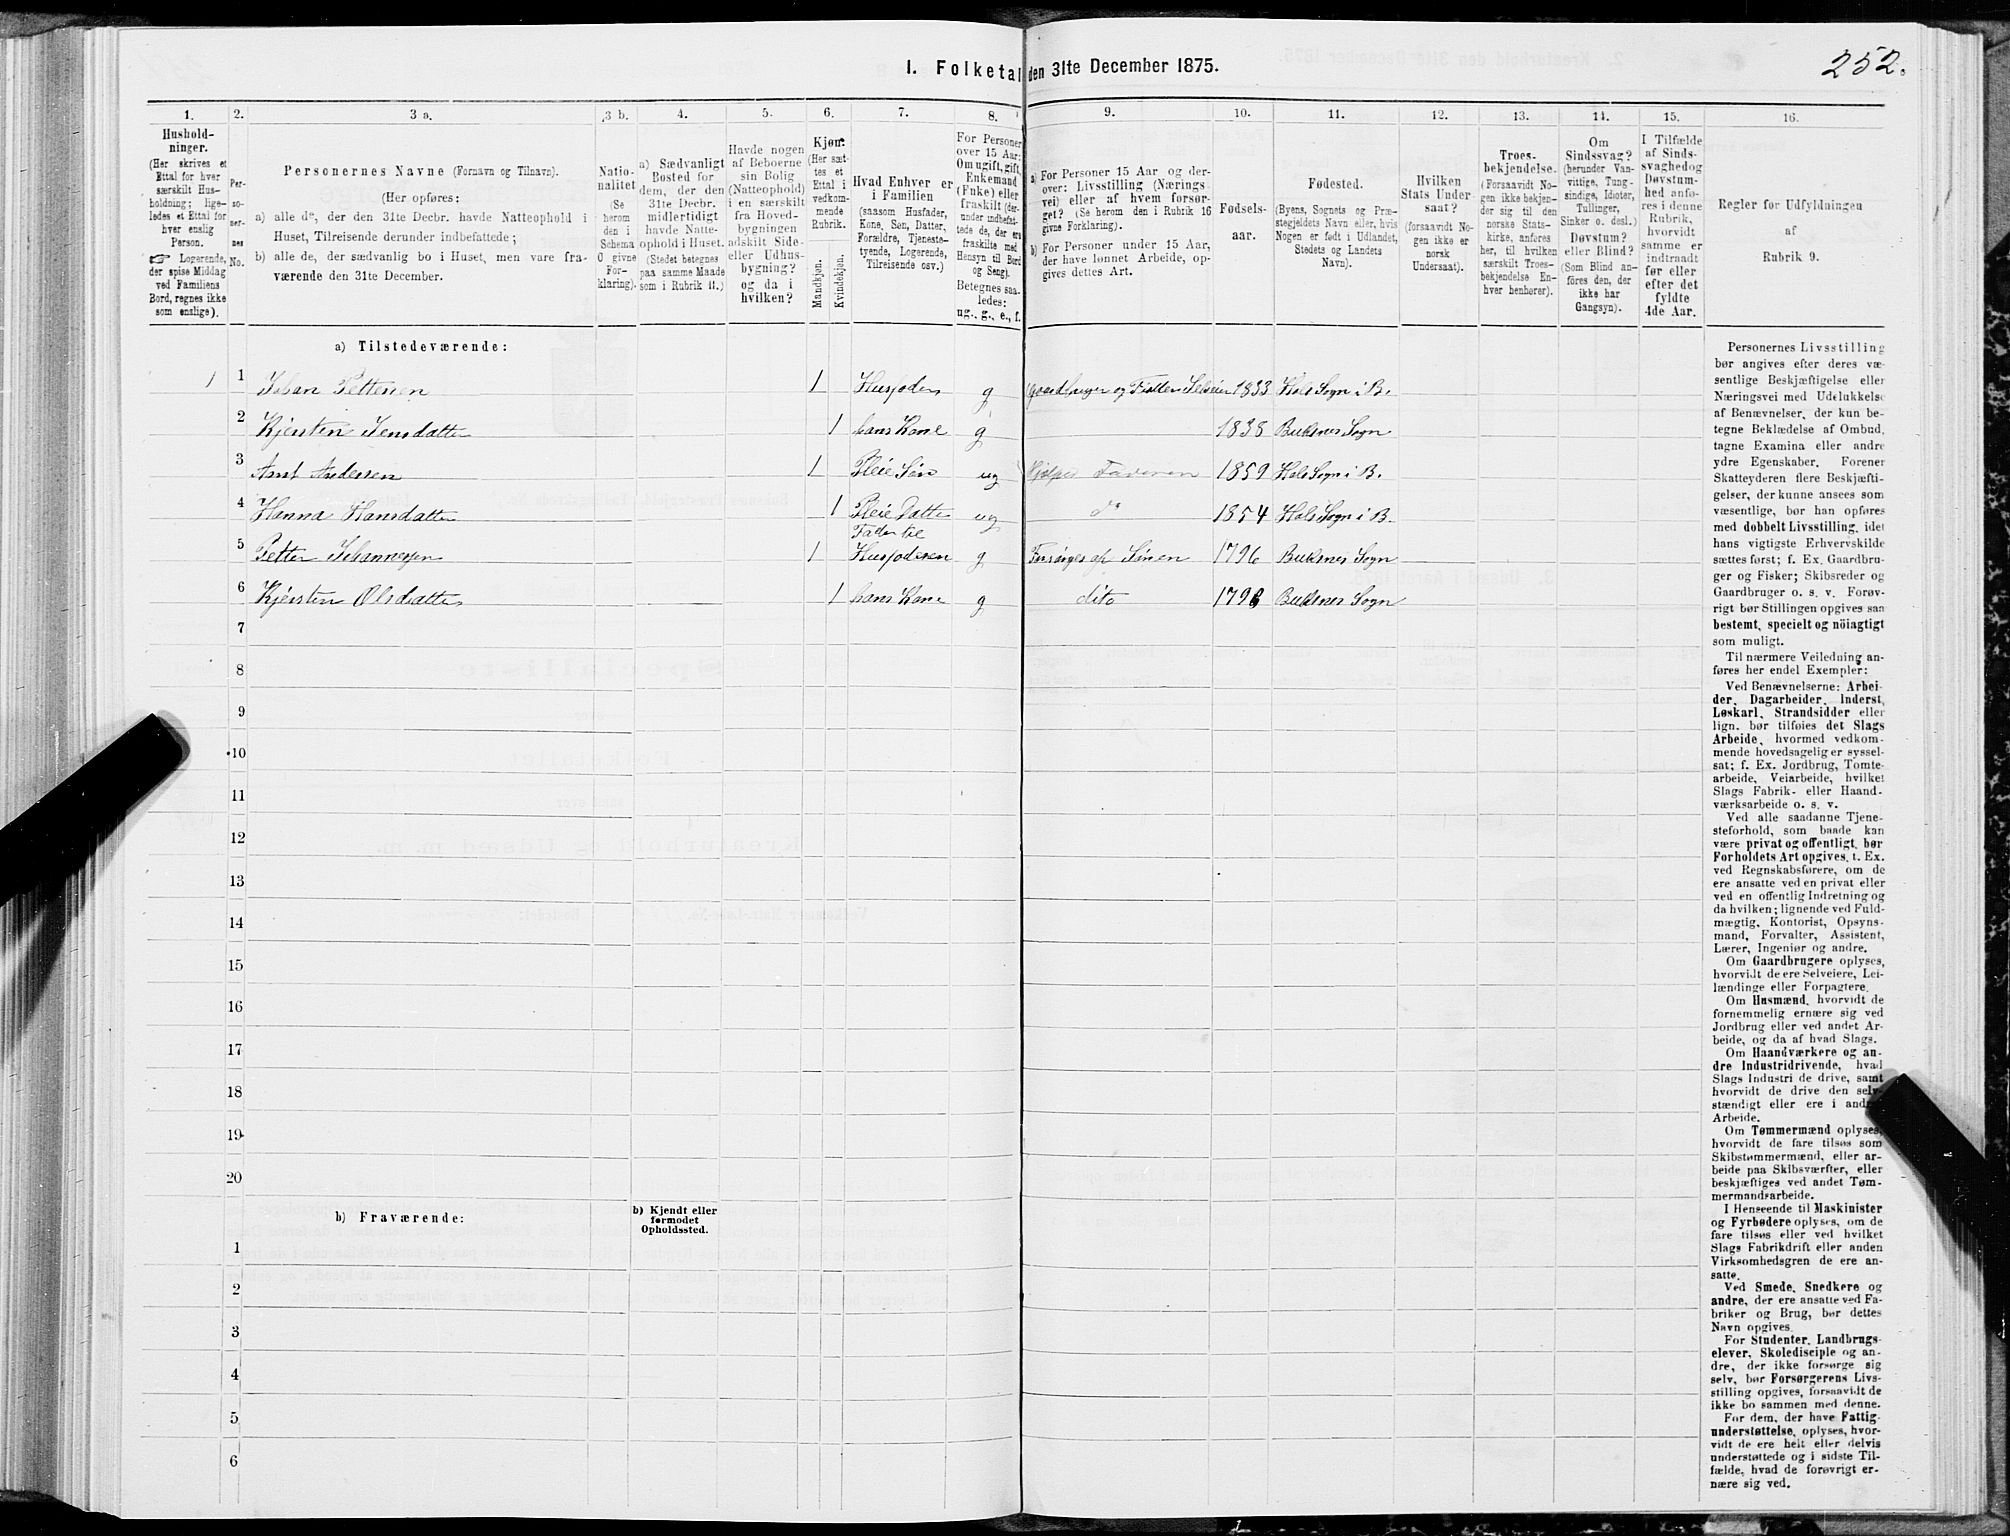 252.
I. Folketal den 31te December 1875.
1.
Hushold-
ninger.
(Her skrives et
Ettal for hver
særskilt Hus-
holdning; lige-
ledes et Ettal for
hver enslig
Person.
☞ Logerende,
der spise Middag
ved Familiens
Bord, regnes ikke
som enslige).
2.
Per-
so-
ner-
nes
No.
3 a.
Personernes Navne (Fornavn og Tilnavn).
(Her opføres:
a) alle de, der den 31te Decbr. havde Natteophold i
Huset, Tilreisende derunder indbefattede;
b) alle de, der sædvanlig bo i Huset, men vare fra-
værende den 31te December.
3 b.
Natio-
nalitet
(Se
herom
den i
Schema
O givne
For-
klaring).
4.
a) Sædvanligt
Bosted for
dem, der den
31te Decbr.
midlertidigt
havde Natte-
ophold i Huset.
(Stedet betegnes
paa samme Maade
som i Rubrik 11.)
5.
Havde nogen
af Beboerne
sin Bolig
(Natteophold)
i en særskilt
fra Hoved-
bygningen
adskilt Side-
eller Udhus-
bygning?
og da i
hvilken?
6.
Kjøn.
(Her sæt-
tes et
Ettal i
vedkom-
mende
Rubrik.
Mandkjøn.
Kvindekjøn.
7.
Hvad Enhver er
i Familien
(saasom Husfader,
Kone, Søn, Datter,
Forældre, Tjeneste-
tyende, Logerende,
Tilreisende osv.)
8.
For Personer
over 15 Aar:
Om ugift, gift,
Enkemand
(Enke) eller
fraskilt (der-
under indbefat-
tede de, der ere
fraskilte med
Hensyn til Bord
og Seng).
Betegnes saa-
ledes:
ug., g., e., f.
9.
a) For Personer 15 Aar og der-
over: Livsstilling (Nærings-
vei) eller af hvem forsør-
get? (Se herom den i Rubrik 16
givne Forklaring).
b) For Personer under 15 Aar,
der have lønnet Arbeide, op-
gives dettes Art.
10.
Fødsels-
aar.
11.
Fødested.
(Byens, Sognets og Præ-
stegjeldets Navn eller, hvis
Nogen er født i Udlandet,
Stedets og Landets
Navn).
12.
Hvilken
Stats Under-
saat?
(forsaavidt No-
gen ikke er
norsk
Undersaat).
13.
Troes-
bekjendelse.
(Forsaavidt No-
gen ikke bekjen-
der sig til den
norske Stats-
kirke, anføres
her, til hvilken
særskilt Troes-
bekjendelse En-
hver henhører).
14.
Om
Sindssvag?
(herunder Van-
vittige, Tung-
sindige, Idioter,
Tullinger,
Sinker o. desl.)
Døvstum?
eller Blind?
(Som Blind an-
føres den, der
ikke har
Gangsyn).
15.
I Tilfælde
af Sinds-
svaghed og
Døvstum-
hed anfø-
res i denne
Rubrik,
hvorvidt
samme er
indtraadt
før eller
efter det
fyldte
4de Aar.
16.
Regler for Udfyldningen
af
Rubrik 9.
a) Tilstedeværende:
1 1 Johan Pettersen 1 Husfader g Gaardbruger og Fisker Selveier 1833 Hals Sogn i B.
2 Kjersten Jensdatter 1 hans Kone g 1838 Buksnes Sogn
3 Arnt Andersen 1 Pleie Søn ug Hjelper Faderen 1859 Hals Sogn i B.
4 Hanna Hansdatter 1 Pleie Datter ug do 1854 Hals Sogn i B.
5 Petter Johannesen 1 Fader til Husfaderen g Forsørges af Sønen 1796 Buksnes Sogn
6 Kjersten Olsdatter 1 hans Kone g dito 1796 Buksnes Sogn
7
8
9
10
11
12
13
14
15
16
17
18
19
20
b) Fraværende:
b) Kjendt eller
formodet
Opholdssted.
1
2
3
4
5
6
Personernes Livsstilling
bør angives efter deres væ-
sentlige Beskjæftigelse eller
Næringsvei med Udelukkelse
af Benævnelser, der kun be-
tegne Beklædelse af Ombud,
tagne Examina eller andre
ydre Egenskaber. Forener
Skatteyderen flere Beskjæfti-
gelser, der kunne ansees som
væsentlige, bør han opføres
med dobbelt Livsstilling, idet
hans vigtigste Erhvervskilde
sættes først; f. Ex. Gaardbru-
ger og Fisker; Skibsreder og
Gaardbruger o. s. v. Forøv-
rigt bør Stillingen opgives saa
bestemt, specielt og nöiagtigt
som muligt.
Til nærmere Veiledning an-
føres her endel Exempler:
Ved Benævnelserne: Arbei-
der, Dagarbeider, Inderst,
Løskarl, Strandsidder eller
lign. bør tilføies det Slags
Arbeide, hvormed vedkom-
mende hovedsagelig er syssel-
sat; f. Ex. Jordbrug, Tomte-
arbeide, Veiarbeide, hvilket
Slags Fabrik- eller Haand-
værksarbeide o. s. v.
Ved alle saadanne Tjene-
steforhold, som baade kan
være privat og offentligt, bør
Forholdets Art opgives, t. Ex.
ved Regnskabsførere, om de
ere ansatte ved en privat eller
ved en offentlig Indretning og
da hvilken; lignende ved Fuld-
mægtig, Kontorist, Opsyns-
mand, Forvalter, Assistent,
Lærer, Ingeniør og andre.
Om Gaardbrugere oplyses,
hvorvidt de ere Selveiere, Lei-
lændinge eller Forpagtere.
Om Husmænd, hvorvidt de
fornemmelig ernære sig ved
Jordbrug eller ved andet Ar-
beide, og da af hvad Slags.
Om Haandværkere og an-
dre Industridrivende, hvad
Slags Industri de drive, samt
hvorvidt de drive den selv-
stændigt eller ere i andres
Arbeide.
Om Tømmermænd oplyses,
hvorvidt de fare tilsøs som
Skibstømmermænd, eller ar-
beide paa Skibsværfter, eller
beskjæftiges ved andet Tøm-
mermandsarbeide.
I Henseende til Maskinister
og Fyrbødere oplyses, om de
fare tilsøs eller ved hvilket
Slags Fabrikdrift eller anden
Virksomhedsgren de ere an-
satte.
Ved Smede, Snedkere og
andre, der ere ansatte ved Fa-
briker og Brug, bør dettes
Navn opgives.
For Studenter, Landbrugs-
elever, Skoledisciple og an-
dre, der ikke forsørge sig
selv, bør Forsørgerens Livs-
stilling opgives, forsaavidt de
ikke bo sammen med denne.
For dem, der have Fattig-
understøttelse, oplyses, hvor-
vidt de ere helt eller delvis
understøttede og i sidste Til-
fælde, hvad de forøvrigt er-
nære sig ved.